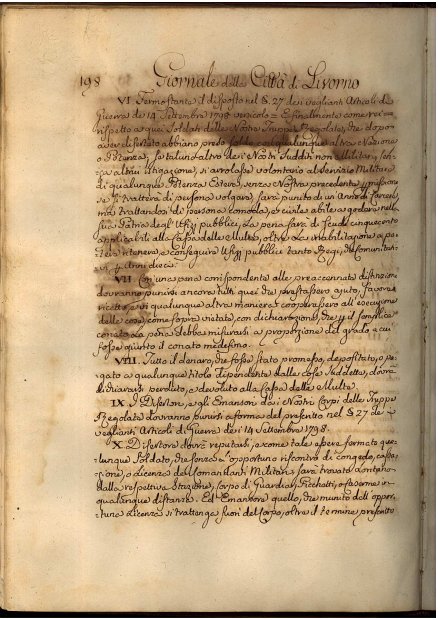 198 Giornale della Città di Livorno
VI. Fermo stante il disposto nel §. 27 de veglianti Articoli di
Guerra de 14 Settembre 1798
rispetto a quei Soldati delle Nostre Truppe Regolate, che dopo
aver disertato abbiano preso soldo con qualunque altra Nazione
o Potenza; se taluno altro dei Nostri Sudditi non Militari, sen-
za altrui istigazione, si arrolasse volontario al servizio Militare
di qualunque Potenza Estera, senza Nostra precedente permissione
se si tratterà di persona volgare, sarà punito di un Anno di Carcere,
ma trattandosi di persona comoda, e civile abile a godere nella
sua Patria degl'Ufizj pubblici, la pena sarà di Scudi cinquecento
applicabili alla Cassa delle Multe, oltre la inabilitazione a po-
tere ottenere, e conseguire Ufizj pubblici tanto Regj, che Comunita-
tivi p. Anni dieci.
VII. Con una pena corrispondente alle preaccennate distinzioni
dovranno punirsi ancora tutti quei che prestassero ajuto, favore,
ricetto, o in qualunque altra maniera cooperassero all'esecuzione
delle cose, come sopra vietate, con dichiarazione, che p. il semplice
conato la pena debba misurarsi a proporzione del grado a cui
fosse giunto il conato medesimo.
VIII. Tutto il denaro, che fosse stato promesso, depositato, o pa-
gato a qualunque titolo dipendente dalle cose suddette, dovrà
dichiararsi perduto, e devoluto alla Cassa delle Multe.
IX. I Disertori, e gli Emansori dai Nostri Corpi delle Truppe
Regolate dovranno punirsi a forma del prescritto nel §. 27 de
veglianti Articoli di Guerra de 14 Settembre 1798.
X. Disertore dovrà reputarsi, e come tale aversi fermato qua-
lunque Soldato, che senza l'opportuno riscontro di congedo, cassa-
zione, o licenza dei Comandanti Militari sarà trovato lontano
dalla respettiva Stazione, Corpo di Guardia, Picchetti, o Caserme in
qualunque distanza. Ed Emansore quello, che munito dell'oppor-
tuna Licenza si trattenga fuori del Corpo, oltre il termine prescritto